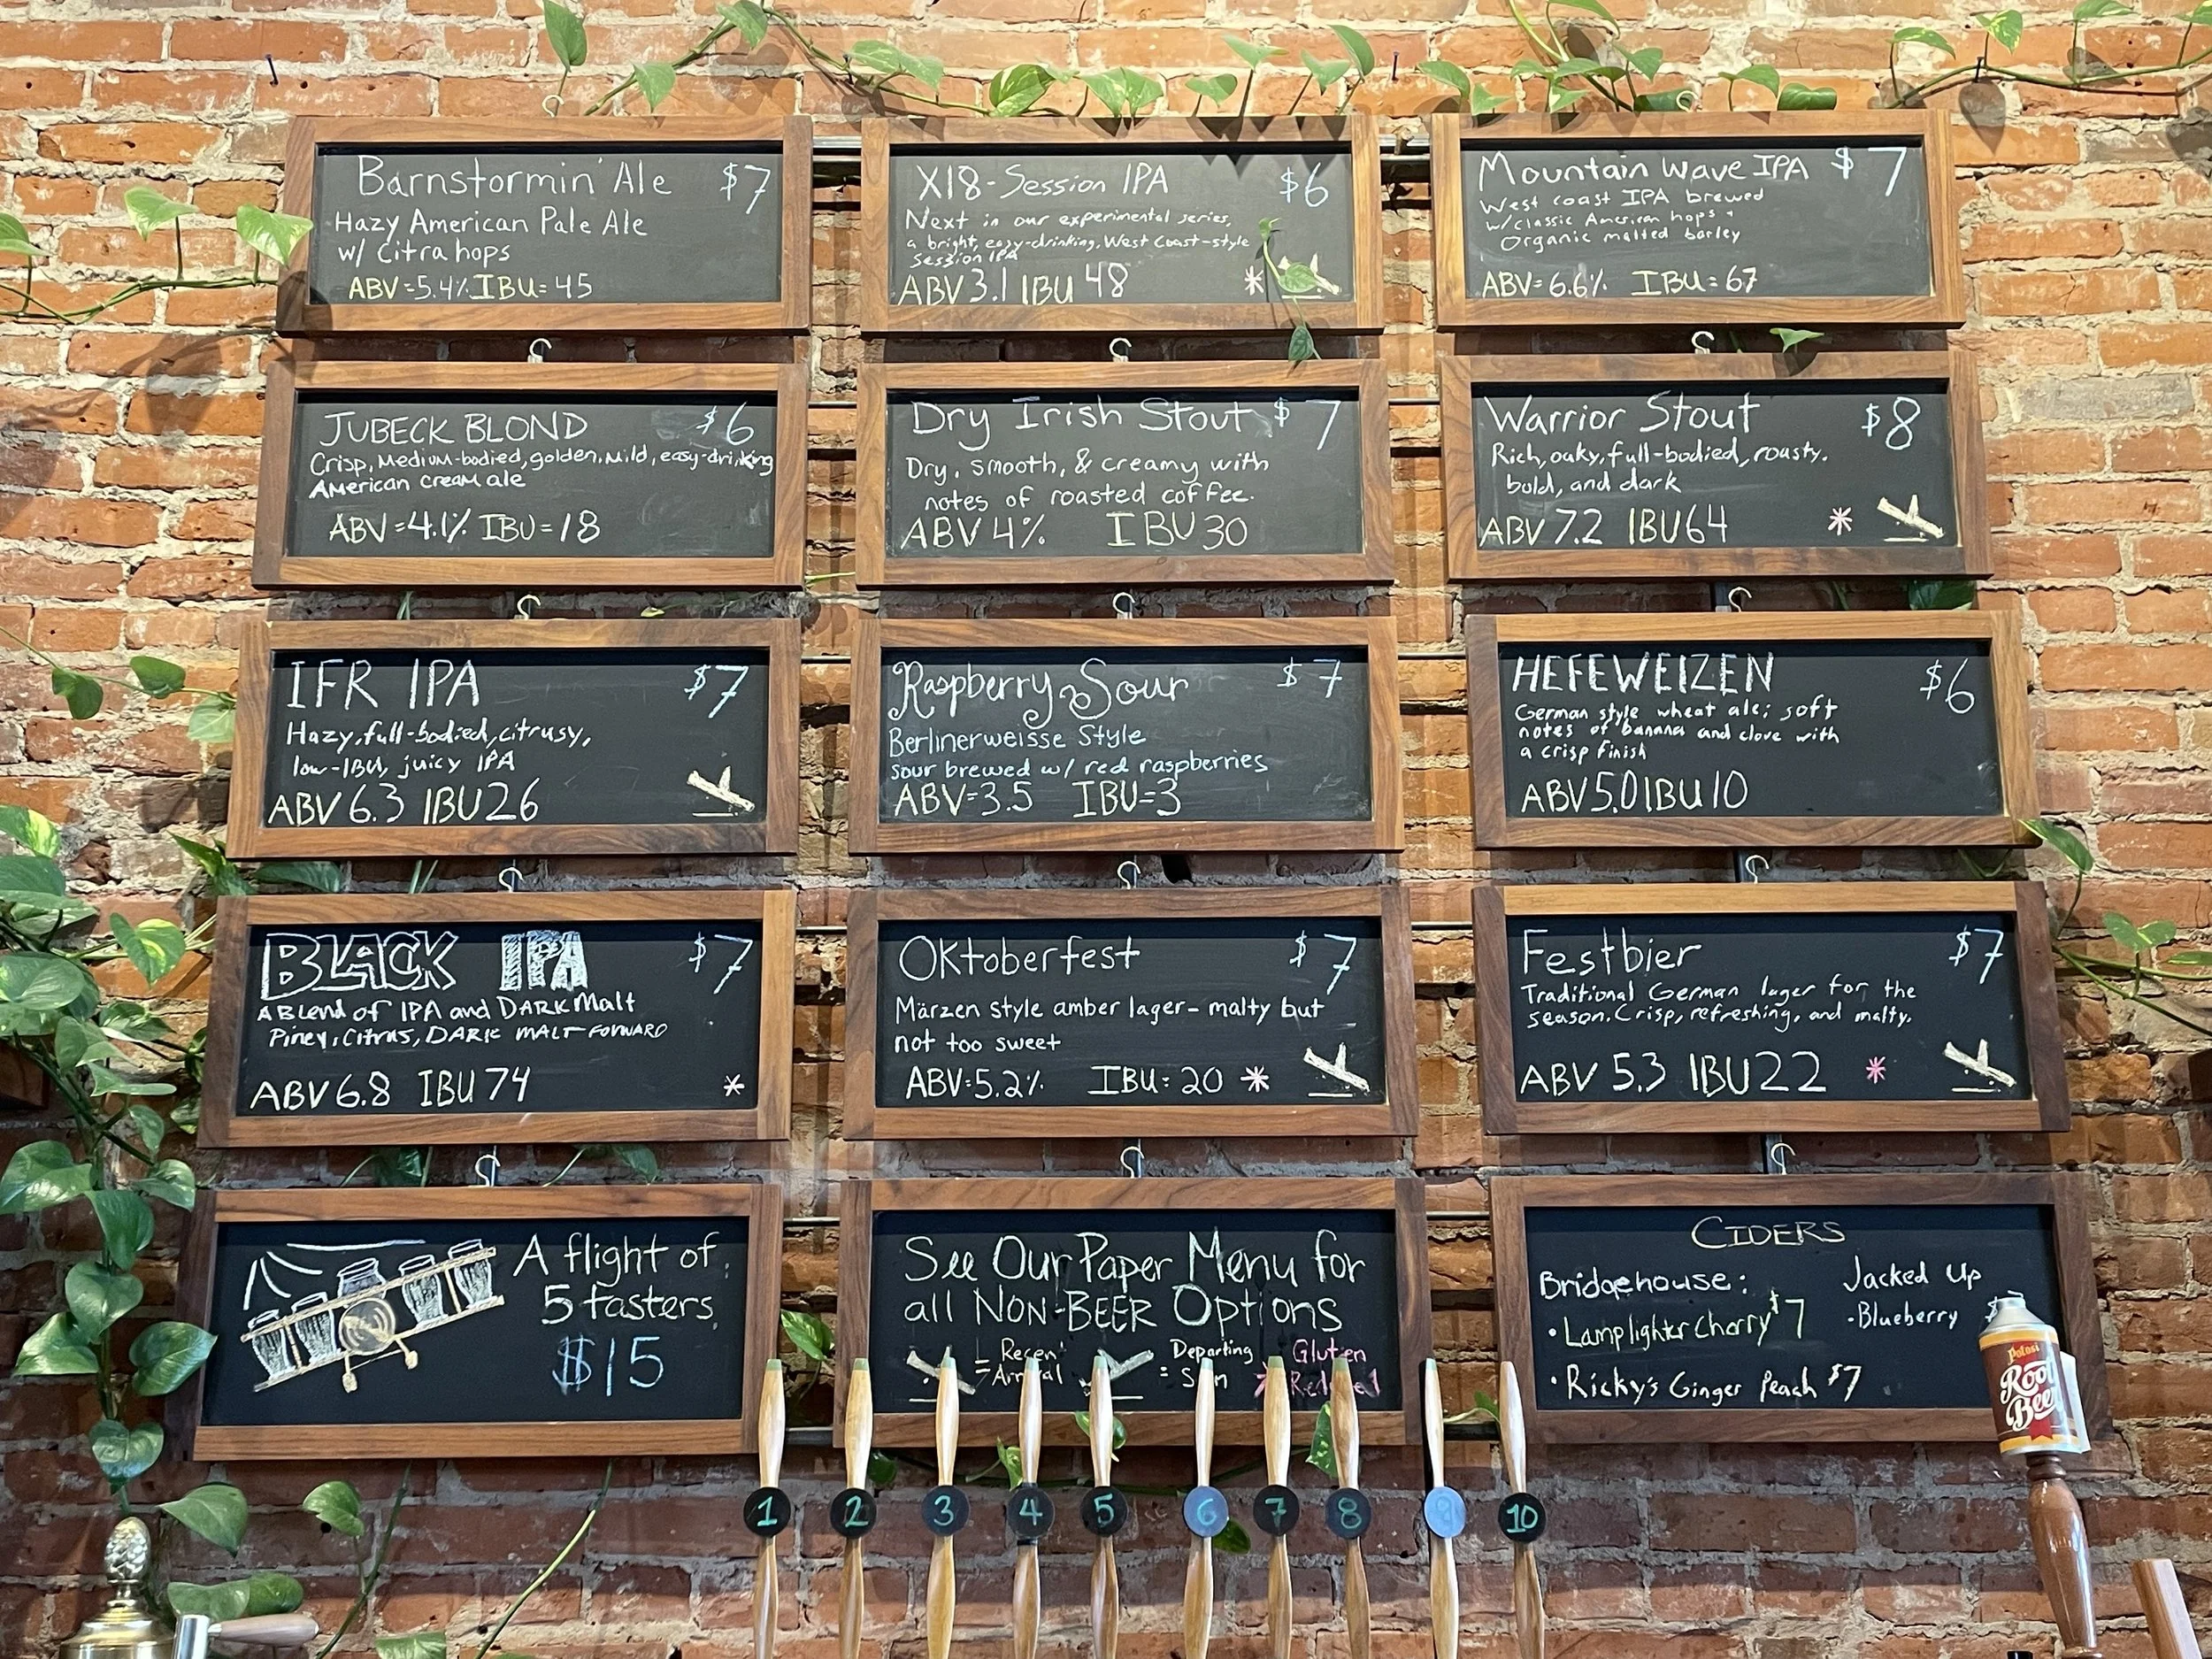 Barnstormin' Ale $7
Hazy American Pale Ale
w/ Citra hops
ABV=5.4% IBU=45
X18-Session IPA $6
Next in our experimental series,
a bright, easy-drinking, West Coast-style
Session IPA
ABV 3.1 IBU 48 *
Mountain Wave IPA $7
West coast IPA brewed
w/classic American hops +
Organic malted barley
ABV=6.6% IBU=67
JUBECK BLOND $6
Crisp, Medium-bodied, golden, Mild, easy-drinking
American cream ale
ABV=4.1% IBU=18
Dry Irish Stout $7
Dry, smooth, & creamy with
notes of roasted coffee.
ABV 4% IBU 30
Warrior Stout $8
Rich, oaky, full-bodied, roasty.
bold, and dark
ABV 7.2 IBU 64 *
IFR IPA $7
Hazy, full-bodied, citrusy,
low-IBU, juicy IPA
ABV 6.3 IBU 26
Raspberry Sour $7
Berlinerweisse Style
sour brewed w/ red raspberries
ABV=3.5 IBU=3
HEFEWEIZEN $6
German style wheat ale; soft
notes of banana and clove with
a crisp finish
ABV 5.0 IBU 10
BLACK IPA $7
A Blend of IPA and DARK Malt
Piney, Citrus, DARK MALT FORWARD
ABV 6.8 IBU 74 *
Oktoberfest $7
Märzen style amber lager- malty but
not too sweet
ABV=5.2% IBU=20 *
Festbier $7
Traditional German lager for the
season. Crisp, refreshing, and malty.
ABV 5.3 IBU 22 *
A flight of
5 tasters
$15
See Our Paper Menu for
all NON-BEER Options
= Recent Arrival
= Departing Soon
* Gluten Reduced
CIDERS
Bridgehouse:
• Lamplighter Cherry $7
• Ricky's Ginger Peach $7
Jacked Up
- Blueberry
Potosi
Root
Beer
1 2 3 4 5 6 7 8 9 10